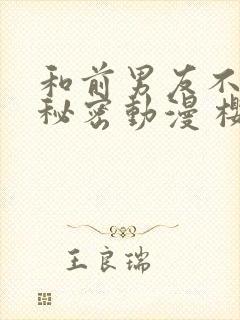 和前男友不
秘密動漫 櫻
王良瑞